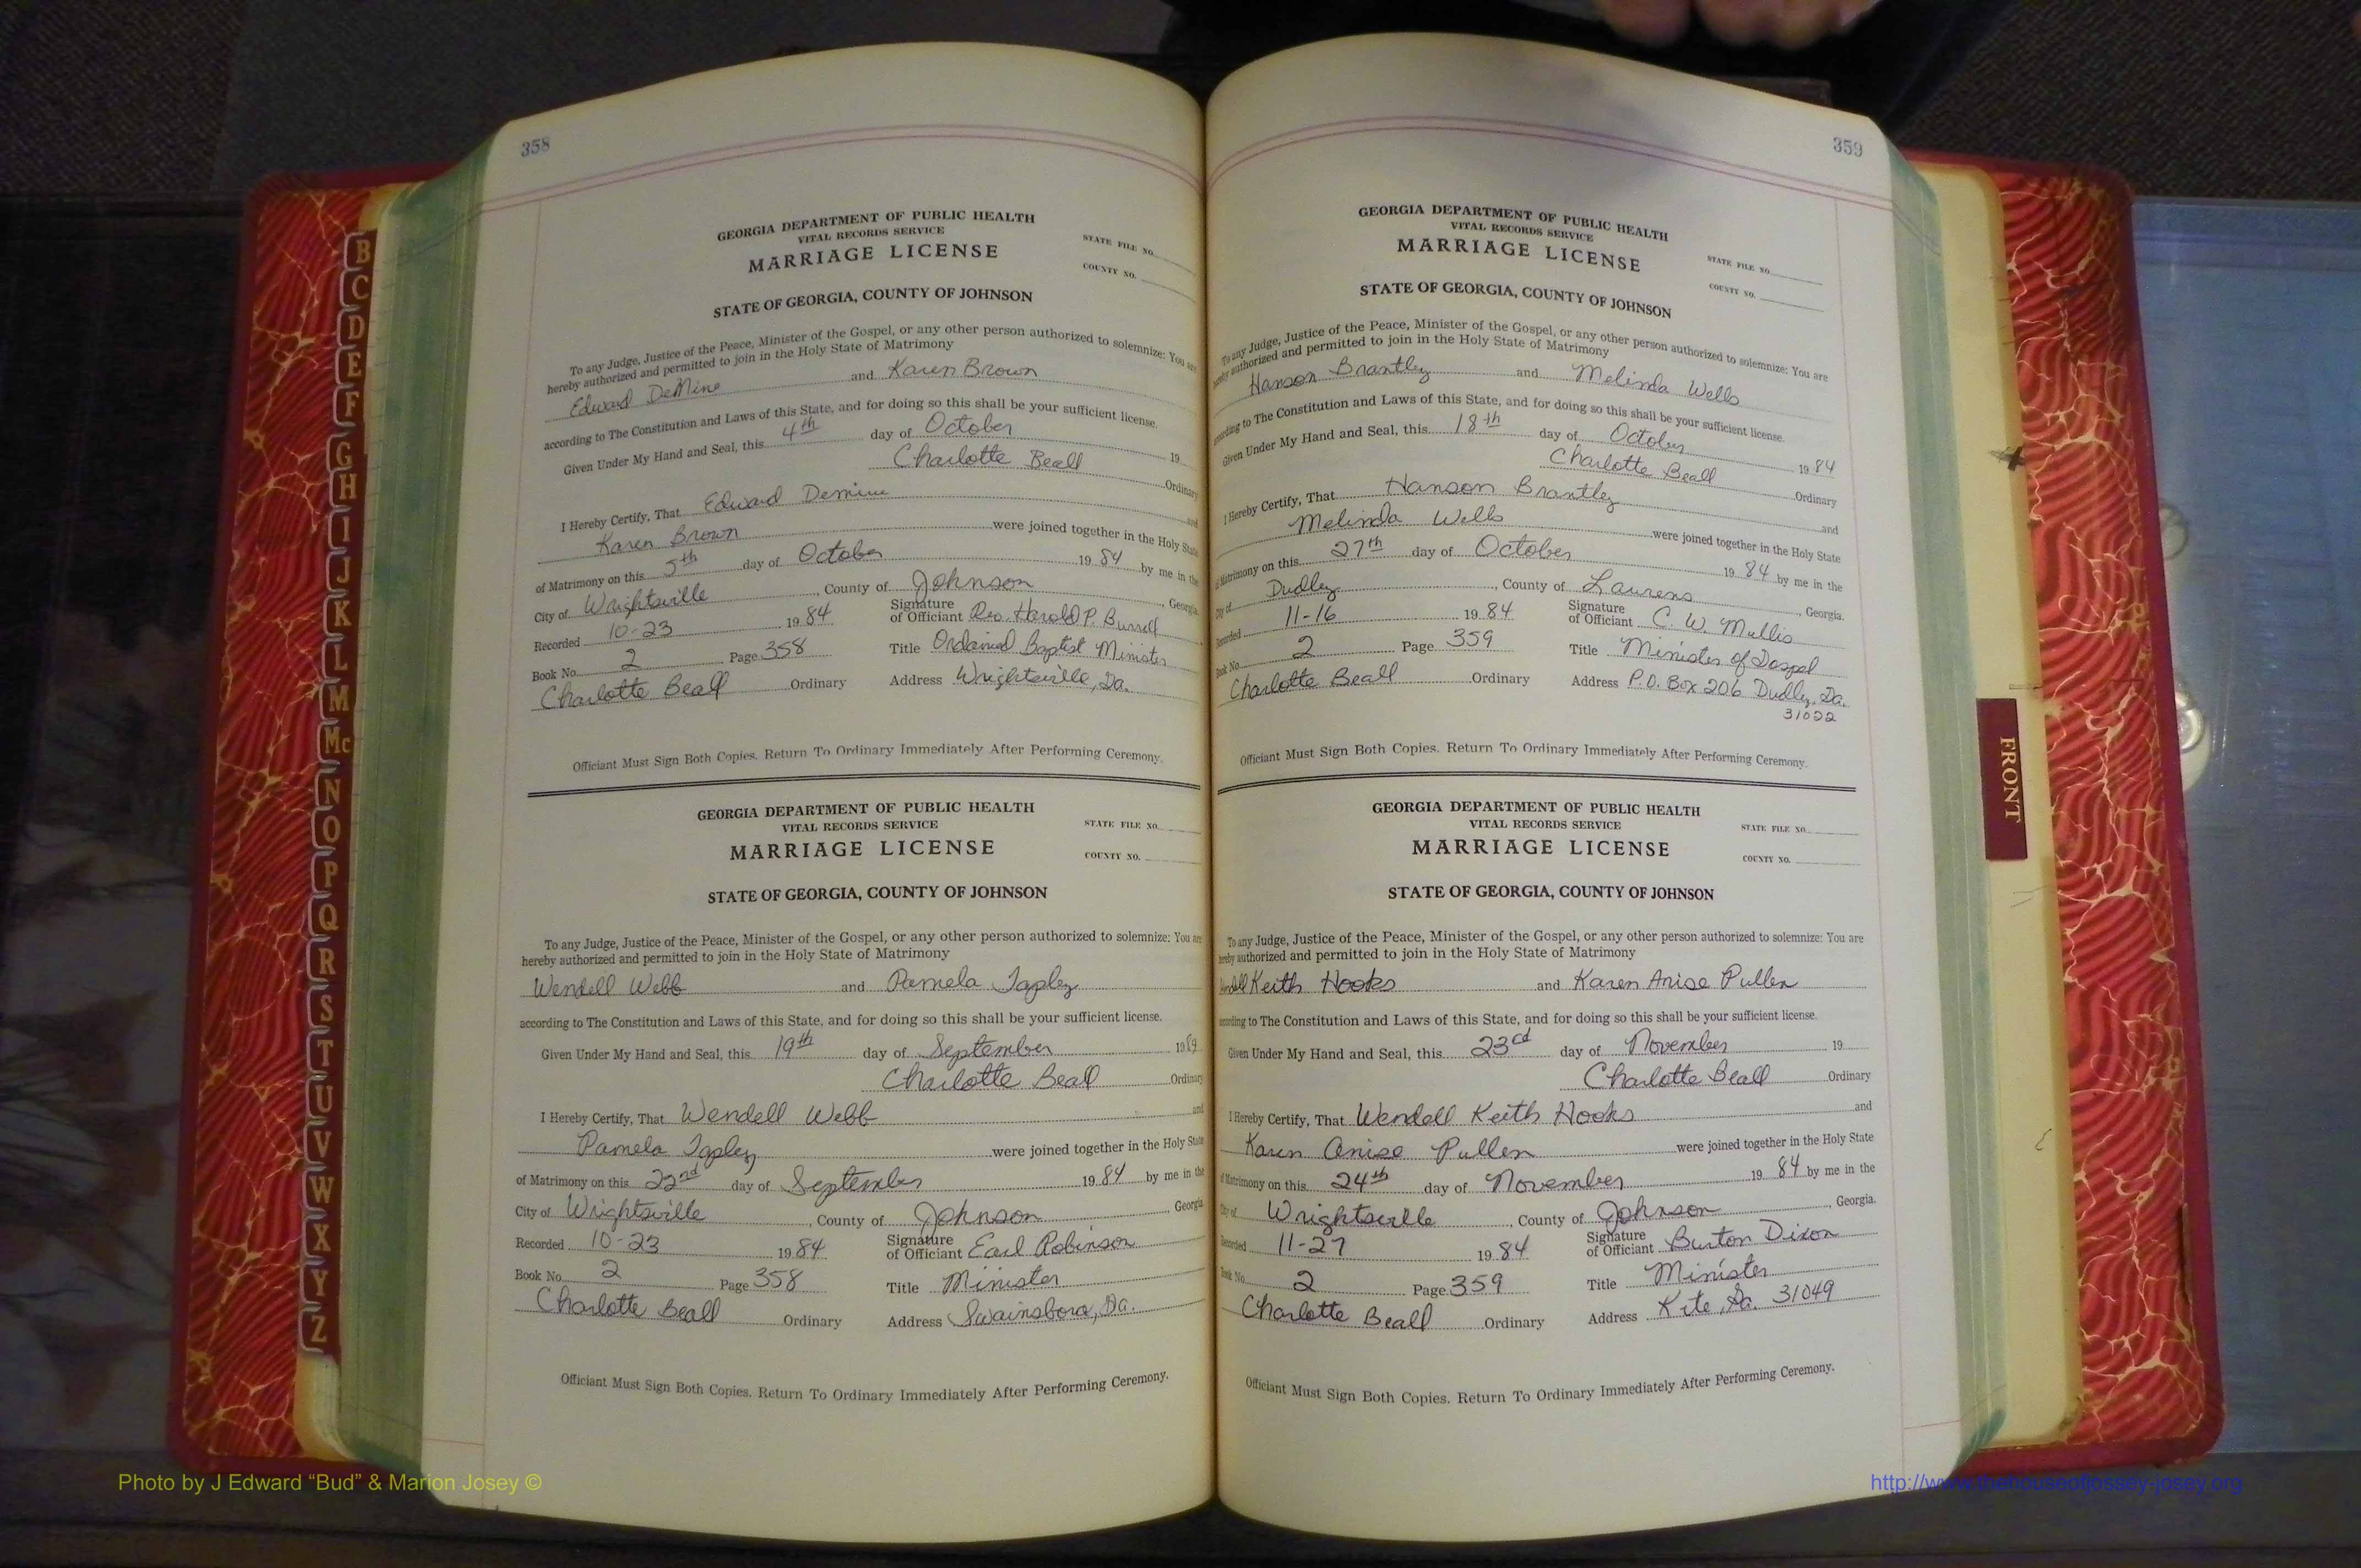 358
GEORGIA DEPARTMENT OF PUBLIC HEALTH
VITAL RECORDS SERVICE
MARRIAGE LICENSE
STATE FILE NO.
COUNTY NO.
STATE OF GEORGIA, COUNTY OF JOHNSON
To any Judge, Justice of the Peace, Minister of the Gospel, or any other person authorized to solemnize: You are
hereby authorized and permitted to join in the Holy State of Matrimony
Edward DeMine and Karen Brown
according to The Constitution and Laws of this State, and for doing so this shall be your sufficient license.
Given Under My Hand and Seal, this 4th day of October 19
Charlotte Beall Ordinary
I Hereby Certify, That Edward Demine and
Karen Brown were joined together in the Holy State
of Matrimony on this 5th day of October 1984 by me in the
City of Wrightsville, County of Johnson, Georgia
Recorded 10-23 1984 Signature of Officiant Rev. Harold P. Burrell
Book No. 2 Page 358 Title Ordained Baptist Minister
Charlotte Beall Ordinary Address Wrightsville, Ga.
Officiant Must Sign Both Copies. Return To Ordinary Immediately After Performing Ceremony.
GEORGIA DEPARTMENT OF PUBLIC HEALTH
VITAL RECORDS SERVICE
MARRIAGE LICENSE
STATE FILE NO.
COUNTY NO.
STATE OF GEORGIA, COUNTY OF JOHNSON
To any Judge, Justice of the Peace, Minister of the Gospel, or any other person authorized to solemnize: You are
hereby authorized and permitted to join in the Holy State of Matrimony
Wendell Webb and Pamela Tapley
according to The Constitution and Laws of this State, and for doing so this shall be your sufficient license.
Given Under My Hand and Seal, this 19th day of September 19
Charlotte Beall Ordinary
I Hereby Certify, That Wendell Webb and
Pamela Tapley were joined together in the Holy State
of Matrimony on this 22nd day of September 1984 by me in the
City of Wrightsville, County of Johnson, Georgia
Recorded 10-23 1984 Signature of Officiant Earl Robinson
Book No. 2 Page 358 Title Minister
Charlotte Beall Ordinary Address Swainsboro, Ga.
Officiant Must Sign Both Copies. Return To Ordinary Immediately After Performing Ceremony.
359
GEORGIA DEPARTMENT OF PUBLIC HEALTH
VITAL RECORDS SERVICE
MARRIAGE LICENSE
STATE FILE NO.
COUNTY NO.
STATE OF GEORGIA, COUNTY OF JOHNSON
To any Judge, Justice of the Peace, Minister of the Gospel, or any other person authorized to solemnize: You are
hereby authorized and permitted to join in the Holy State of Matrimony
Hanson Brantley and Melinda Wells
according to The Constitution and Laws of this State, and for doing so this shall be your sufficient license.
Given Under My Hand and Seal, this 18th day of October 1984
Charlotte Beall Ordinary
I Hereby Certify, That Hanson Brantley and
Melinda Wells were joined together in the Holy State
of Matrimony on this 27th day of October 1984 by me in the
City of Dudley, County of Laurens, Georgia.
Recorded 11-16 1984 Signature of Officiant C. W. Mullis
Book No. 2 Page 359 Title Minister of Gospel
Charlotte Beall Ordinary Address P.O. Box 206 Dudley, Ga.
31022
Officiant Must Sign Both Copies. Return To Ordinary Immediately After Performing Ceremony.
GEORGIA DEPARTMENT OF PUBLIC HEALTH
VITAL RECORDS SERVICE
MARRIAGE LICENSE
STATE FILE NO.
COUNTY NO.
STATE OF GEORGIA, COUNTY OF JOHNSON
To any Judge, Justice of the Peace, Minister of the Gospel, or any other person authorized to solemnize: You are
hereby authorized and permitted to join in the Holy State of Matrimony
Wendell Keith Hooks and Karen Anise Pullen
according to The Constitution and Laws of this State, and for doing so this shall be your sufficient license.
Given Under My Hand and Seal, this 23rd day of November 19
Charlotte Beall Ordinary
I Hereby Certify, That Wendell Keith Hooks and
Karen Anise Pullen were joined together in the Holy State
of Matrimony on this 24th day of November 1984 by me in the
City of Wrightsville, County of Johnson, Georgia.
Recorded 11-27 1984 Signature of Officiant Burton Dixon
Book No. 2 Page 359 Title Minister
Charlotte Beall Ordinary Address Kite, Ga. 31049
Officiant Must Sign Both Copies. Return To Ordinary Immediately After Performing Ceremony.
B
C
D
E
F
G
H
I
J
K
L
M
Mc
N
O
P
Q
R
S
T
U
V
W
X
Y
Z
FRONT
Photo by J Edward “Bud” & Marion Josey ©
http://www.thehouseofjossey-josey.org